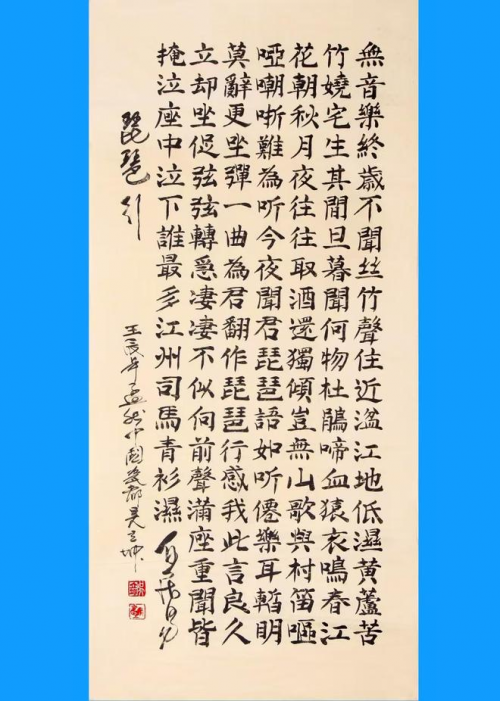 無音樂終歲不聞丝竹聲住近湓江地低濕黄蘆苦
竹嬈宅生其間旦暮聞何物杜鵑啼血猿哀鳴春江
花朝秋月夜往往取酒還獨傾豈無山歌與村笛嘔
啞嘲哳難為听今夜聞君琵琶語如听僊樂耳暫明
莫辭更坐彈一曲為君翻作琵琶行感我此言良久
立却坐促弦弦轉急凄凄不似向前聲滿座重聞皆
掩泣座中泣下誰最多江州司馬青衫濕
琵琶引
壬辰年中國瓷都